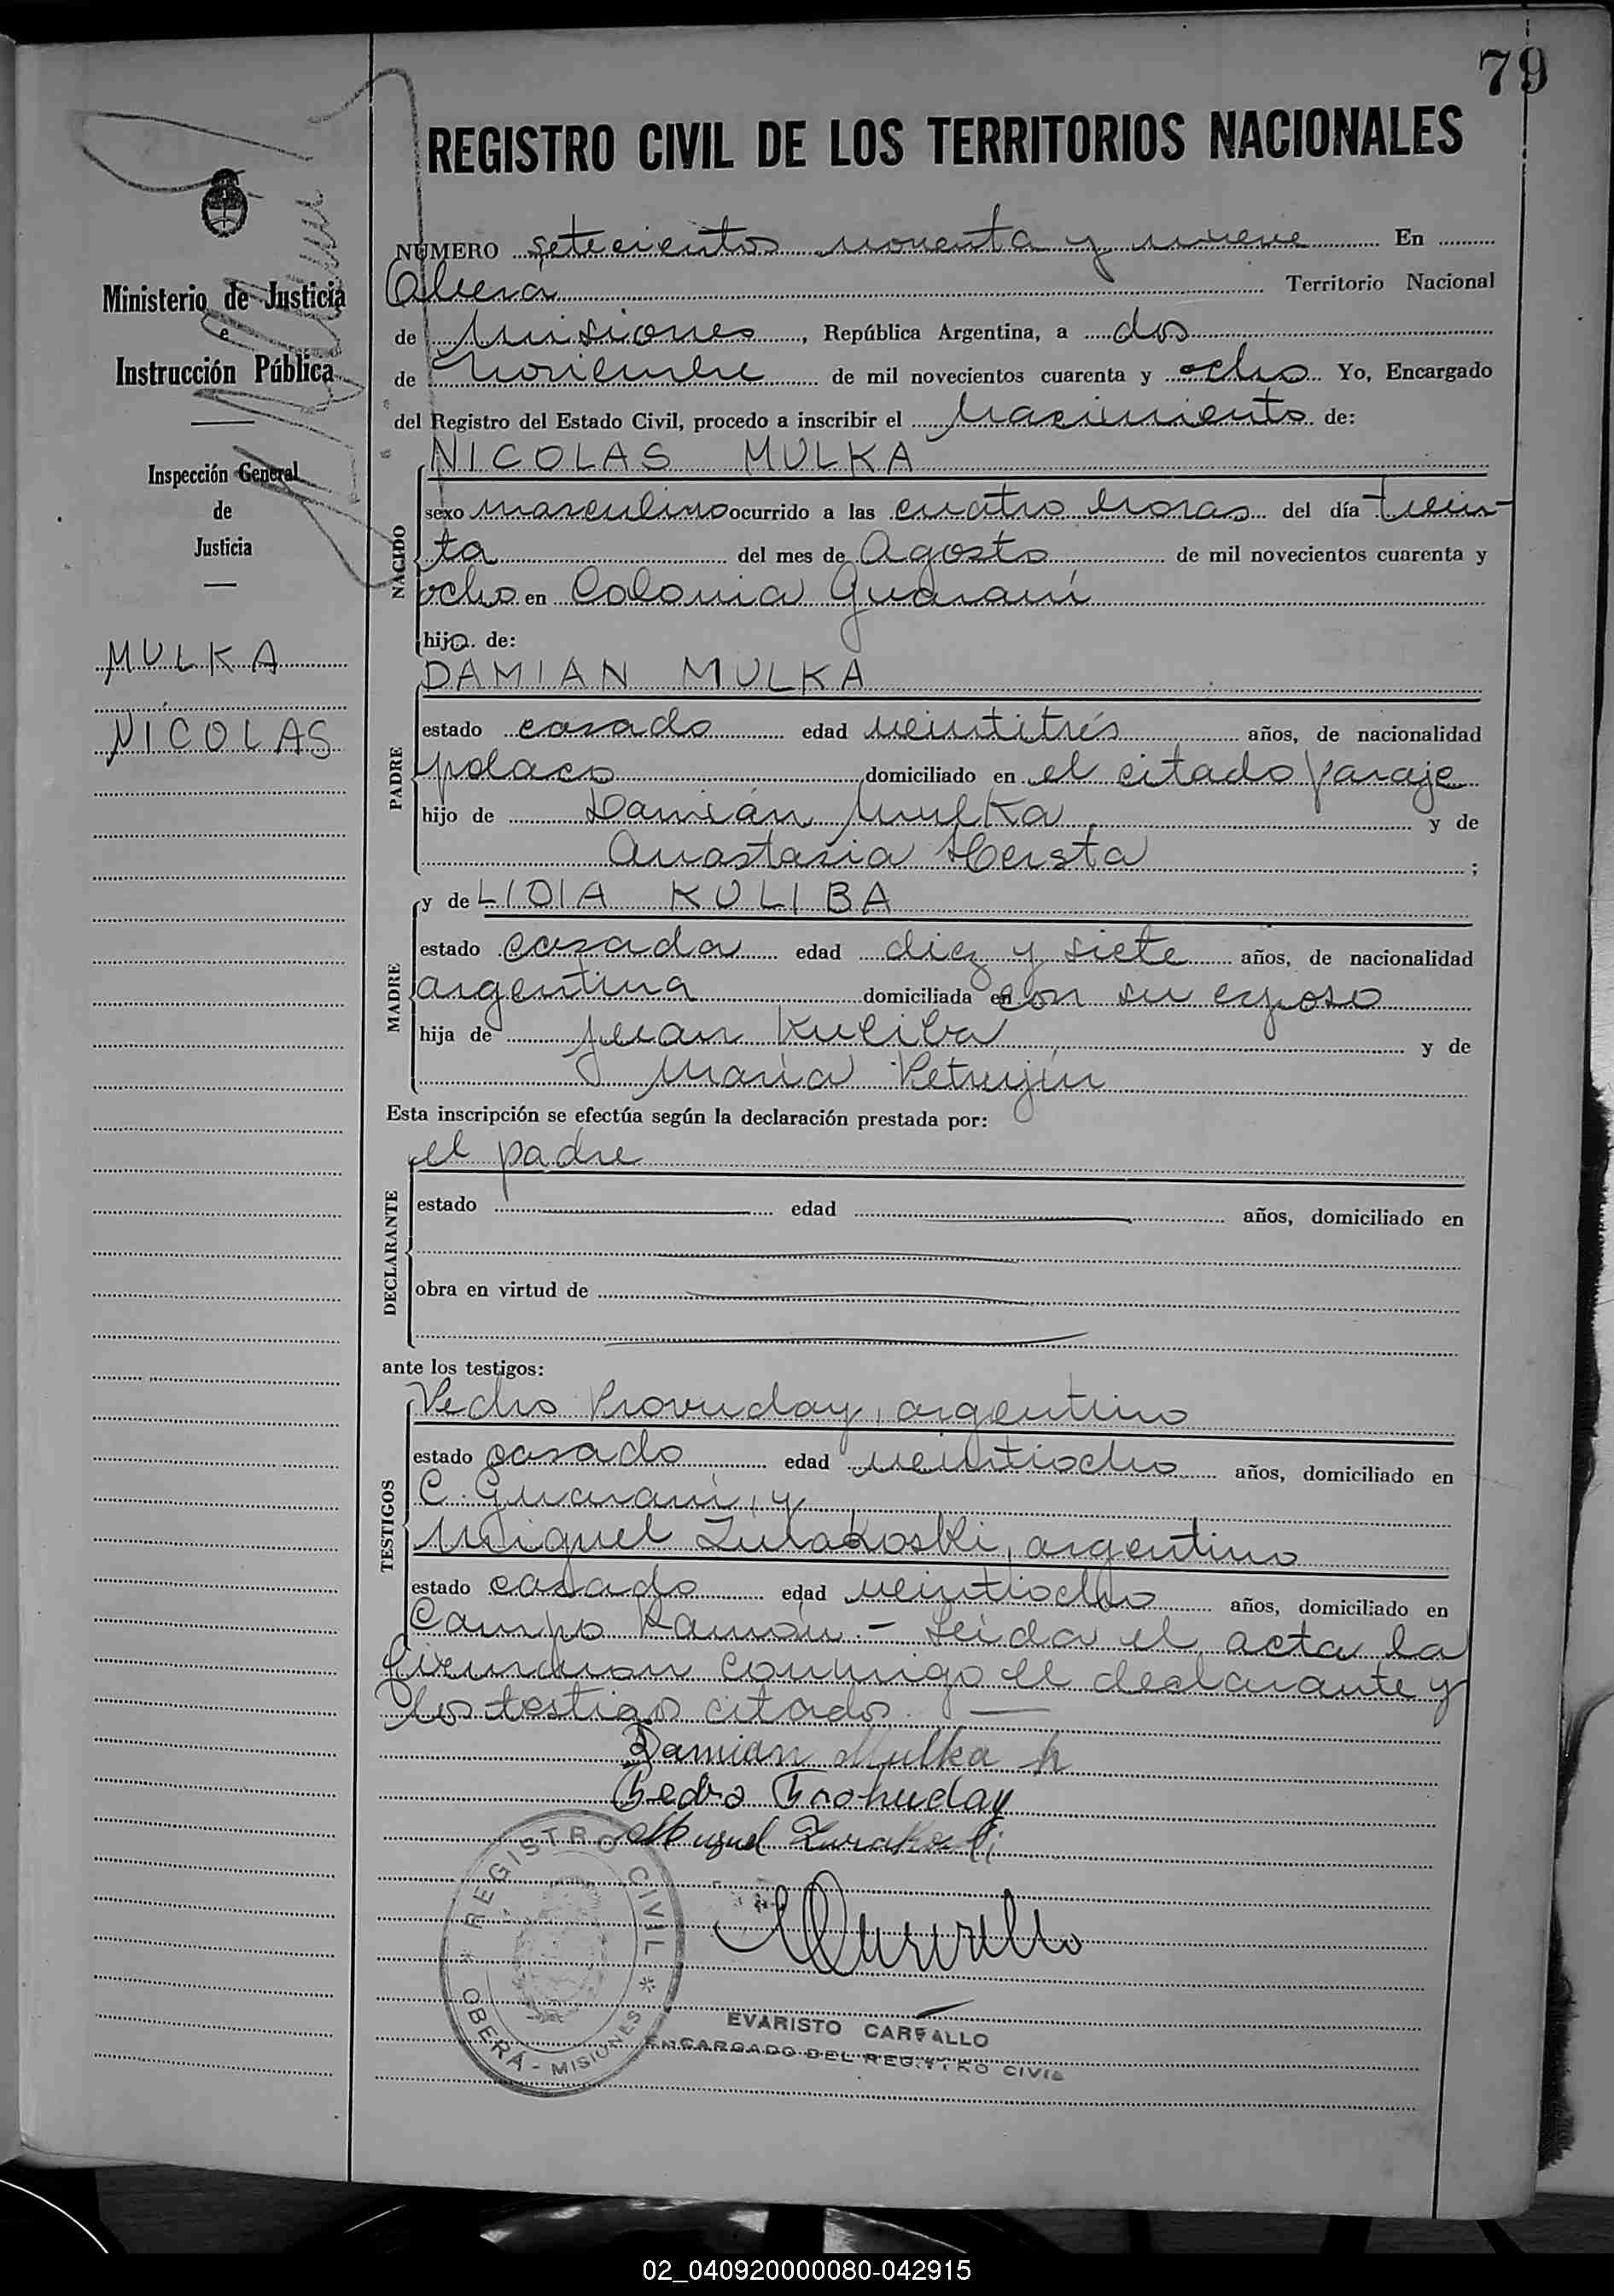 79
REGISTRO CIVIL DE LOS TERRITORIOS NACIONALES
Ministerio de Justicia
e
Instrucción Pública
Inspección General
de
Justicia
MULKA
NICOLAS
NÚMERO setecientos noventa y nueve En
Oberá Territorio Nacional
de Misiones, República Argentina, a dos
de Noviembre de mil novecientos cuarenta y ocho Yo, Encargado
del Registro del Estado Civil, procedo a inscribir el Nacimiento de:
NICOLAS MULKA
NACIDO
sexo masculino ocurrido a las cuatro horas del día trein-
ta del mes de Agosto de mil novecientos cuarenta y
ocho en Colonia Guaraní
hijo de:
DAMIAN MULKA
PADRE
estado casado edad veintitrés años, de nacionalidad
polaco domiciliado en el citado paraje
hijo de Damián Mulka y de
Anastasia ;
y de LIDIA KULIBA
MADRE
estado casada edad diez y siete años, de nacionalidad
argentina domiciliada en con su esposo
hija de Juan Kuliba y de
María Petrujin
Esta inscripción se efectúa según la declaración prestada por:
el padre
DECLARANTE
estado edad años, domiciliado en
obra en virtud de
ante los testigos:
TESTIGOS
Pedro argentino
estado casado edad veintiocho años, domiciliado en
C. Guaraní, y
Miguel Zurakoski, argentino
estado casado edad veintiocho años, domiciliado en
Campo Ramón.- Leída el acta la
firman conmigo el declarante y
los testigos citados.
Damian Mulka h
Pedro
Miguel Zurakoski
REGISTRO CIVIL
* OBERÁ - MISIONES *
EVARISTO CARVALLO
ENCARGADO DEL REGISTRO CIVIL
02_040920000080-042915